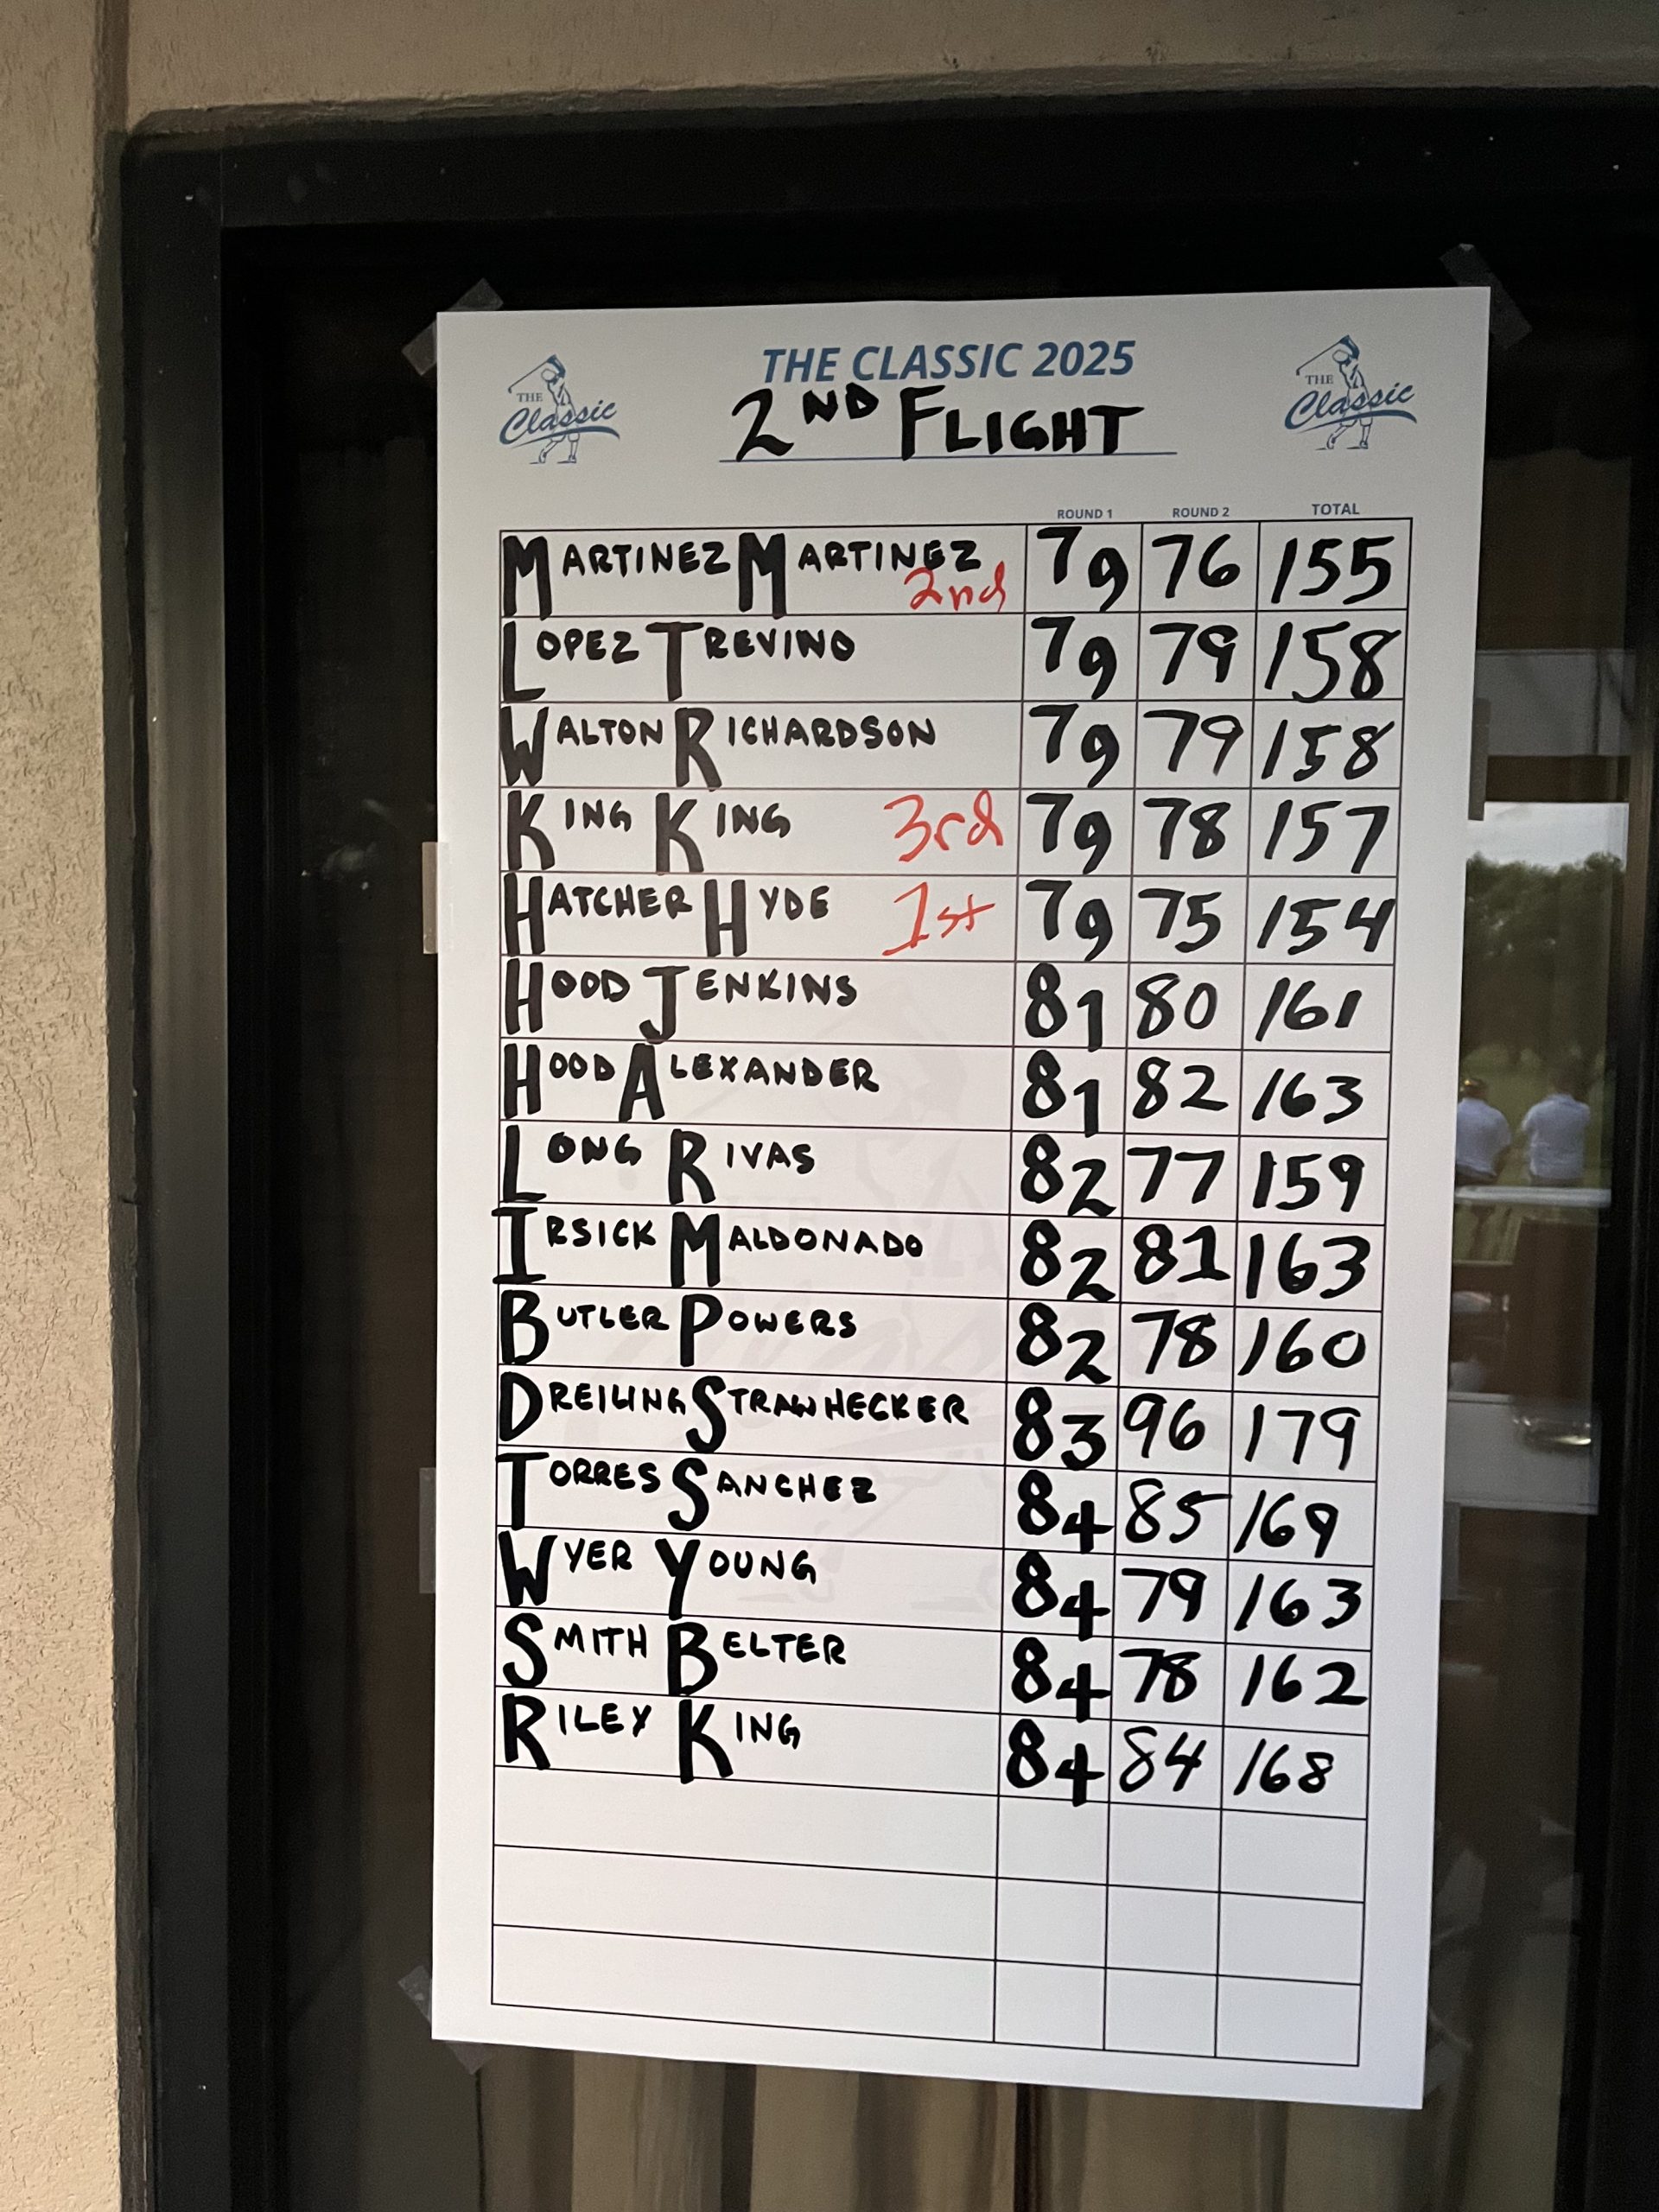 THE CLASSIC 2025
THE Classic
THE Classic
2ND FLIGHT
ROUND 1 ROUND 2 TOTAL
MARTINEZ MARTINEZ 2nd 79 76 155
LOPEZ TREVINO 79 79 158
WALTON RICHARDSON 79 79 158
KING KING 3rd 79 78 157
HATCHER HYDE 1st 79 75 154
HOOD JENKINS 81 80 161
HOOD ALEXANDER 81 82 163
LONG RIVAS 82 77 159
IRSICK MALDONADO 82 81 163
BUTLER POWERS 82 78 160
DREILING STRAWHECKER 83 96 179
TORRES SANCHEZ 84 85 169
WYER YOUNG 84 79 163
SMITH BELTER 84 78 162
RILEY KING 84 84 168